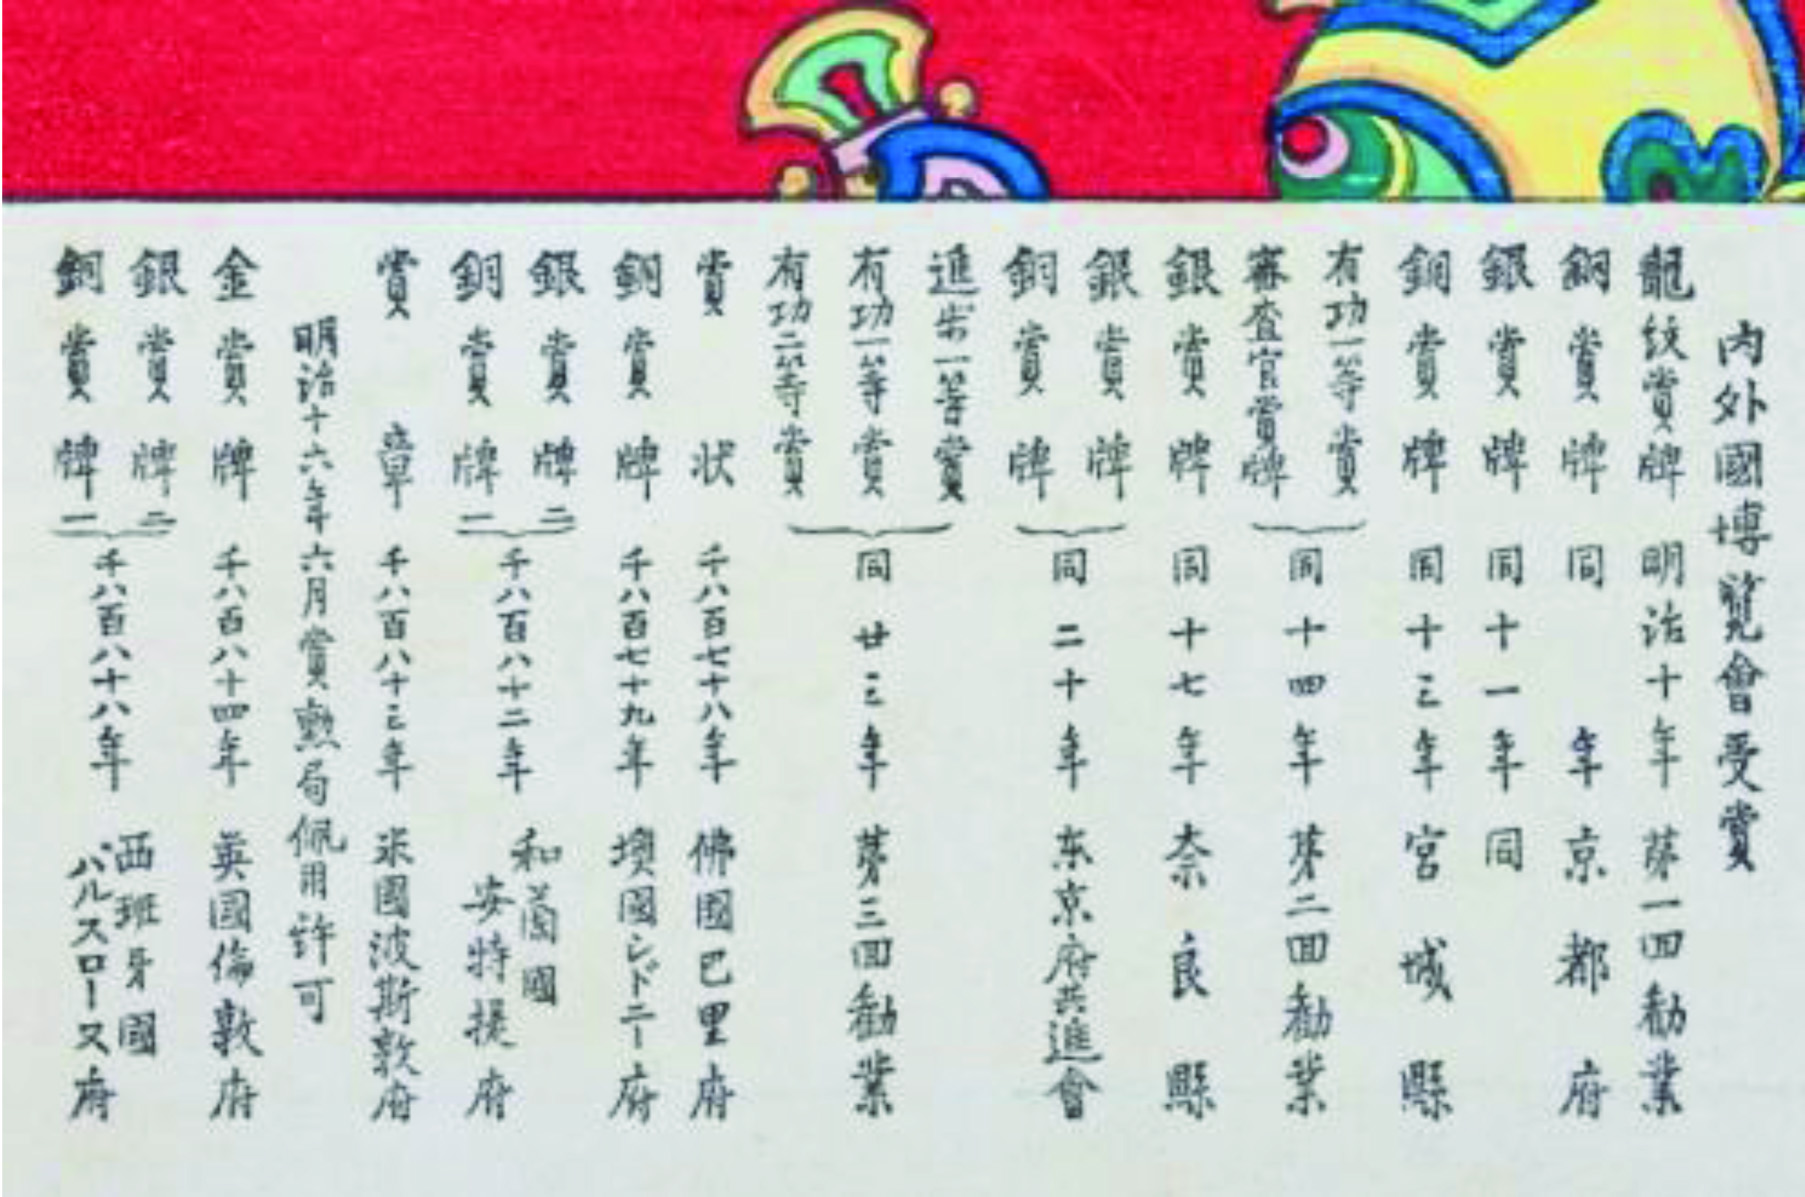 内外國博覧會受賞
龍紋賞牌 明治十年 第一回勧業
銅賞牌 同 年 京都府
銀賞牌 同十一年 同
銅賞牌 同十三年 宮城縣
有功一等賞
審査官賞牌
同十四年 第二回勧業
銀賞牌 同十七年 奈良縣
銀賞牌
銅賞牌
同二十年 东京府共進會
進歩一等賞
有功一等賞
有功二等賞
同廿三年 第三回勧業
賞状 千八百七十八年 佛國巴里府
銅賞牌 千八百七十九年 墺國シドニー府
銀賞牌二
銅賞牌一
千八百八十二年 和蘭國
安特提府
賞章 千八百八十三年 米國波斯敦府
明治十六年六月賞勲局佩用許可
金賞牌 千八百八十四年 英國倫敦府
銀賞牌二
銅賞牌一
千八百八十八年 西班牙國
バルスロース府